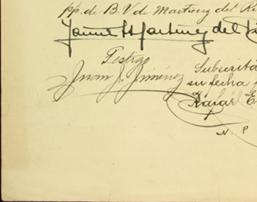 pp. de B. V de Martinez del R
Jaime H Martinez del R
Testigo
Juan J. Jiménez
Subscrita
su fecha
Rafael E
N P